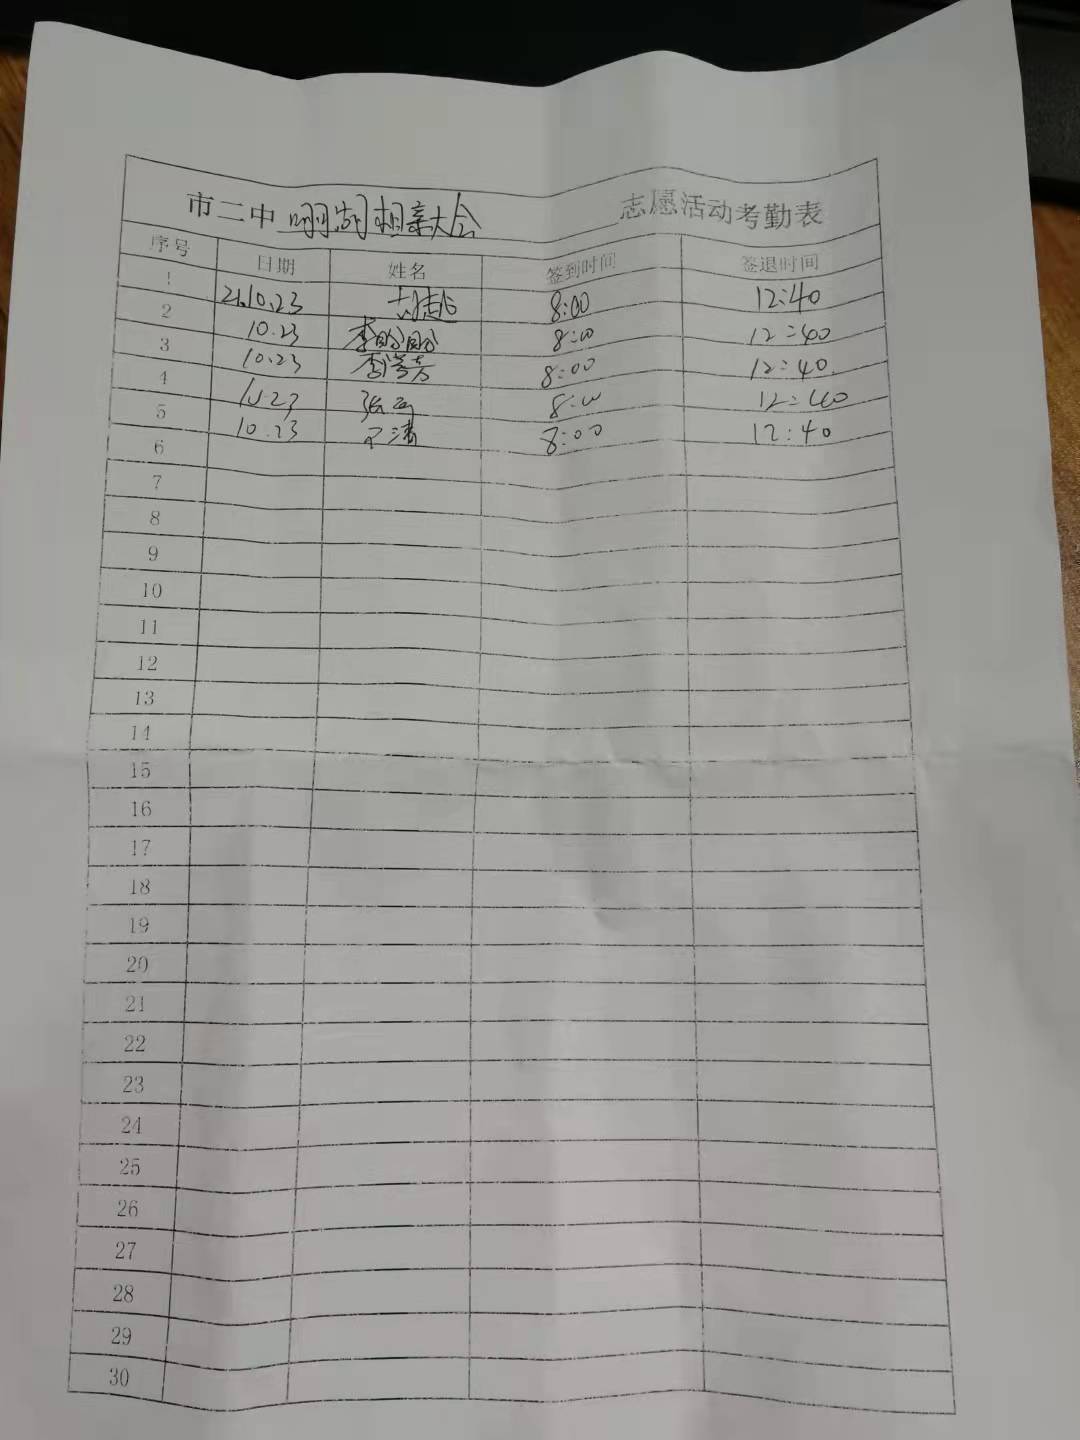 市二中 明湖相亲大会 志愿活动考勤表
序号 日期 姓名 签到时间 签退时间
1 21.10.23 8:00 12:40
2 10.23 李盼盼 8:00 12:40
3 10.23 李芳 8:00 12:40
4 10.23 张 8:00 12:40
5 10.23 清 8:00 12:40
6
7
8
9
10
11
12
13
14
15
16
17
18
19
20
21
22
23
24
25
26
27
28
29
30